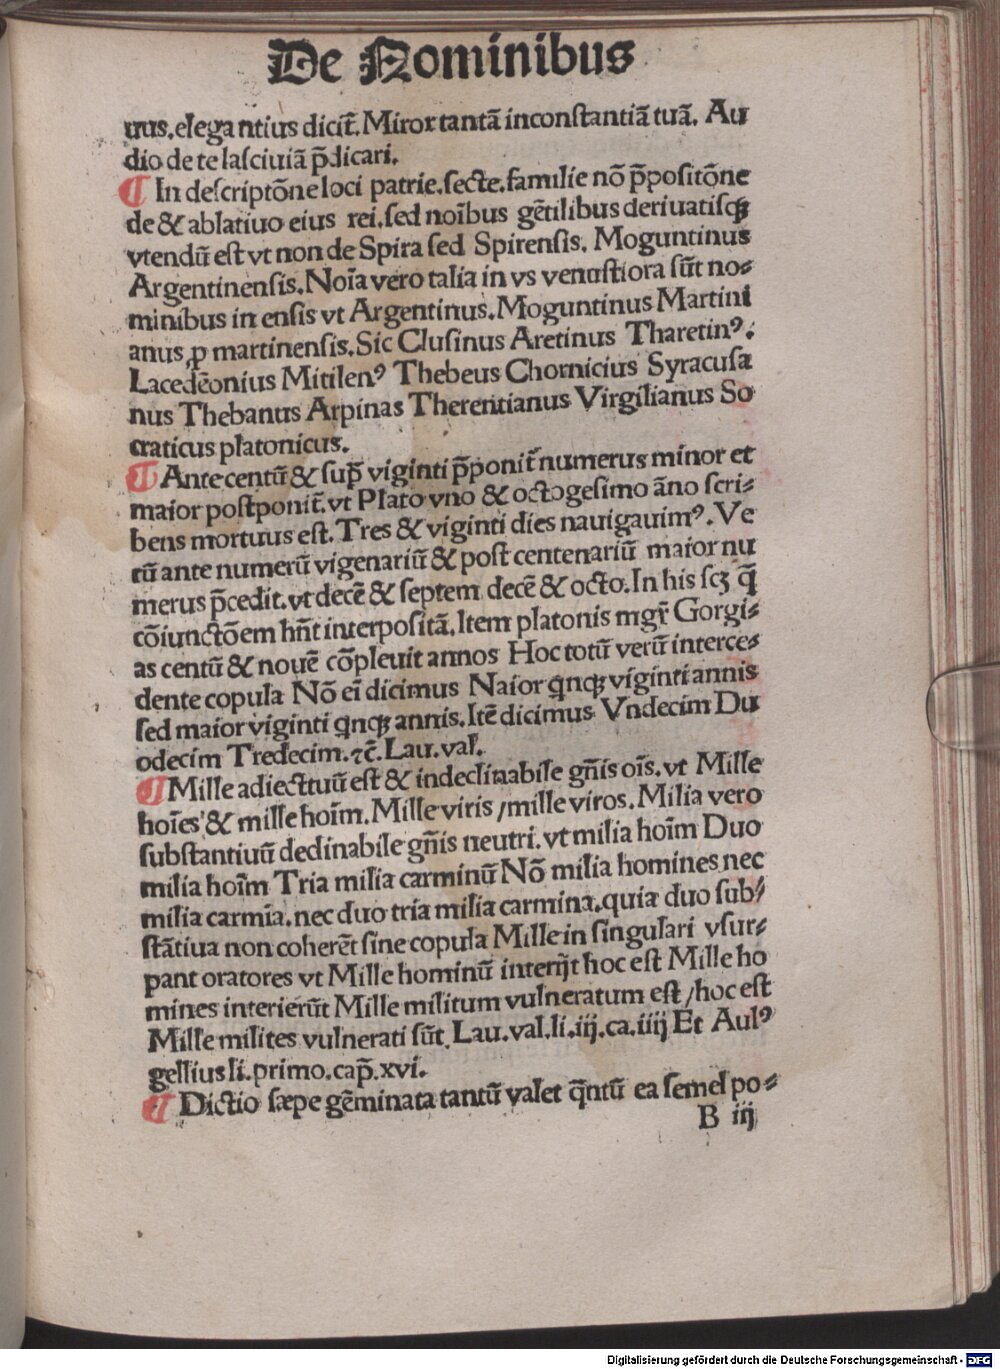 De Nominibus
uus.elegantius dicit᷒. Miror tantā inconstantiā tuā. Au
dio de te lasciuiā p̄dicari.
¶ In descriptōne loci patrie.secte.familie nō p̄positōne
de & ablatiuo eius rei.sed noībus gētilibus deriuatisqꝫ
vtendū est vt non de Spira sed Spirensis. Moguntinus
Argentinensis.Noīa vero talia in vs venustiora sūt no⸗
minibus in ensis vt Argentinus.Moguntinus Martini
anus ꝓ martinensis.Sic Clusinus Aretinus Tharetinꝰ.
Lacedēonius Mitilenꝰ Thebeus Chornicius Syracusa
nus Thebanus Arpinas Therentianus Virgilianus So
craticus platonicus.
¶ Ante centū & sup̄ viginti p̄ponit᷒ numerus minor et
maior postponit᷒. vt Plato vno & octogesimo āno scri⸗
bens mortuus est. Tres & viginti dies nauigauimꝰ. Ve
rū ante numerū vigenariū & post centenariū maior nu
merus p̄cedit.vt decē & septem decē & octo.In his scꝫ q̄
cōiunctōem hn̄t interpositā.Item platonis mgr̄ Gorgi⸗
as centū & nouē cōpleuit annos Hoc totū verū interce⸗
dente copula Nō eī dicimus Naior qͥnqꝫ viginti annis
sed maior viginti qͥnqꝫ annis.Itē dicimus Vndecim Du
odecim Tredecim.⁊c̄.Lau.val.
¶ Mille adiecttuū est & indeclinabile gn̄is oīs.vt Mille
hoīes & mille hoīm. Mille viris /mille viros. Milia vero
substantiuū declinabile gn̄is neutri. vt milia hoīm Duo
milia hoīm Tria milia carminū Nō milia homines nec
milia carmīa.nec duo tria milia carmina.quia duo sub⸗
stātiua non coherēt sine copula Mille in singulari vsur⸗
pant oratores vt Mille hominū interijt hoc est Mille ho
mines interierūt Mille militum vulneratum est /hoc est
Mille milites vulnerati sūt Lau.val.li.iij.ca.iiij Et Aulꝰ
gellius li.primo.cap̄.xvi.
¶ Dictio sæpe gēminata tantū valet qᷓntū ea semel po⸗
B iij
Digitalisierung gefördert durch die Deutsche Forschungsgemeinschaft - DFG